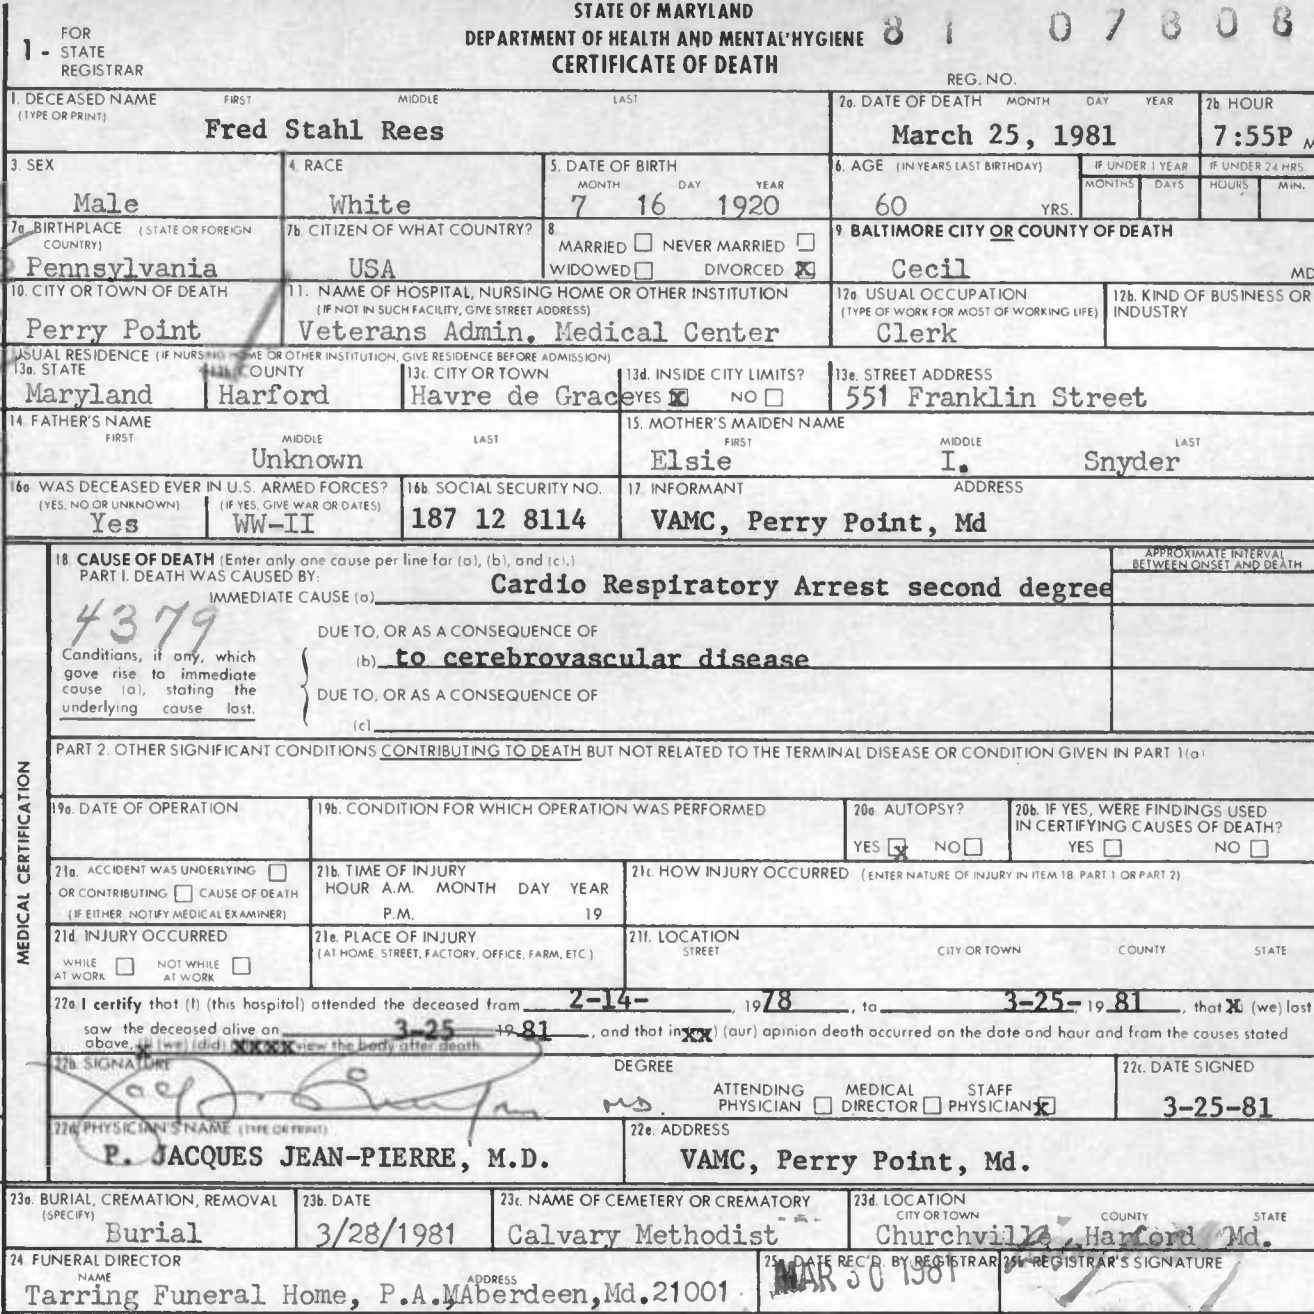 STATE OF MARYLAND
DEPARTMENT OF HEALTH AND MENTAL HYGIENE
CERTIFICATE OF DEATH
1 - FOR STATE REGISTRAR
81 07808
REG. NO.
1. DECEASED NAME (TYPE OR PRINT) FIRST MIDDLE LAST
Fred Stahl Rees
2a. DATE OF DEATH MONTH DAY YEAR
March 25, 1981
2b HOUR
7:55P M
3. SEX
Male
4. RACE
White
5. DATE OF BIRTH
MONTH DAY YEAR
7 16 1920
6. AGE (IN YEARS LAST BIRTHDAY)
60 YRS.
IF UNDER 1 YEAR
MONTHS DAYS
IF UNDER 24 HRS.
HOURS MIN.
7a. BIRTHPLACE (STATE OR FOREIGN COUNTRY)
Pennsylvania
7b CITIZEN OF WHAT COUNTRY?
USA
8
MARRIED NEVER MARRIED
WIDOWED DIVORCED X
9. BALTIMORE CITY OR COUNTY OF DEATH
Cecil MD
10. CITY OR TOWN OF DEATH
Perry Point
11. NAME OF HOSPITAL, NURSING HOME OR OTHER INSTITUTION
(IF NOT IN SUCH FACILITY, GIVE STREET ADDRESS)
Veterans Admin. Medical Center
12a USUAL OCCUPATION
(TYPE OF WORK FOR MOST OF WORKING LIFE)
Clerk
12b. KIND OF BUSINESS OR INDUSTRY
USUAL RESIDENCE (IF NURSING HOME OR OTHER INSTITUTION, GIVE RESIDENCE BEFORE ADMISSION)
13a. STATE
Maryland
13b. COUNTY
Harford
13c. CITY OR TOWN
Havre de Grace
13d. INSIDE CITY LIMITS?
YES X NO
13e. STREET ADDRESS
551 Franklin Street
14 FATHER'S NAME
FIRST MIDDLE LAST
Unknown
15. MOTHER'S MAIDEN NAME
FIRST MIDDLE LAST
Elsie I. Snyder
16a WAS DECEASED EVER IN U.S. ARMED FORCES?
(YES, NO OR UNKNOWN) (IF YES, GIVE WAR OR DATES)
Yes WW-II
16b. SOCIAL SECURITY NO.
187 12 8114
17 INFORMANT ADDRESS
VAMC, Perry Point, Md
MEDICAL CERTIFICATION
18 CAUSE OF DEATH (Enter only one cause per line for (a), (b), and (c).)
PART I. DEATH WAS CAUSED BY:
IMMEDIATE CAUSE (a) Cardio Respiratory Arrest second degree
APPROXIMATE INTERVAL
BETWEEN ONSET AND DEATH
4379
DUE TO, OR AS A CONSEQUENCE OF
(b) to cerebrovascular disease
Conditions, if any, which
gave rise to immediate
cause (a), stating the
underlying cause last.
DUE TO, OR AS A CONSEQUENCE OF
(c)
PART 2. OTHER SIGNIFICANT CONDITIONS CONTRIBUTING TO DEATH BUT NOT RELATED TO THE TERMINAL DISEASE OR CONDITION GIVEN IN PART 1(a)
19a. DATE OF OPERATION
19b. CONDITION FOR WHICH OPERATION WAS PERFORMED
20a AUTOPSY?
YES X NO
20b. IF YES, WERE FINDINGS USED
IN CERTIFYING CAUSES OF DEATH?
YES NO
21a. ACCIDENT WAS UNDERLYING
OR CONTRIBUTING CAUSE OF DEATH
(IF EITHER, NOTIFY MEDICAL EXAMINER)
21b. TIME OF INJURY
HOUR A.M. MONTH DAY YEAR
P.M. 19
21c. HOW INJURY OCCURRED (ENTER NATURE OF INJURY IN ITEM 18, PART 1 OR PART 2)
21d INJURY OCCURRED
WHILE AT WORK NOT WHILE AT WORK
21e. PLACE OF INJURY
(AT HOME, STREET, FACTORY, OFFICE, FARM, ETC.)
21f. LOCATION
STREET CITY OR TOWN COUNTY STATE
22a I certify that (I) (this hospital) attended the deceased from 2-14- , 1978 , to 3-25- 19 81 , that X (we) last
saw the deceased alive on 3-25 19 81 , and that in xx) (our) opinion death occurred on the date and hour and from the causes stated
above, (we) (did) XXXX view the body after death.
22b. SIGNATURE
DEGREE
M.D.
ATTENDING PHYSICIAN MEDICAL DIRECTOR STAFF PHYSICIAN X
22c. DATE SIGNED
3-25-81
22d. PHYSICIAN'S NAME (TYPE OR PRINT)
P. JACQUES JEAN-PIERRE, M.D.
22e. ADDRESS
VAMC, Perry Point, Md.
23a. BURIAL, CREMATION, REMOVAL
(SPECIFY)
Burial
23b. DATE
3/28/1981
23c. NAME OF CEMETERY OR CREMATORY
Calvary Methodist
23d. LOCATION
CITY OR TOWN COUNTY STATE
Churchville, Harford Md.
24 FUNERAL DIRECTOR
NAME ADDRESS
Tarring Funeral Home, P.A. Aberdeen,Md.21001
25a. DATE REC'D. BY REGISTRAR
MAR 30 1981
25b. REGISTRAR'S SIGNATURE